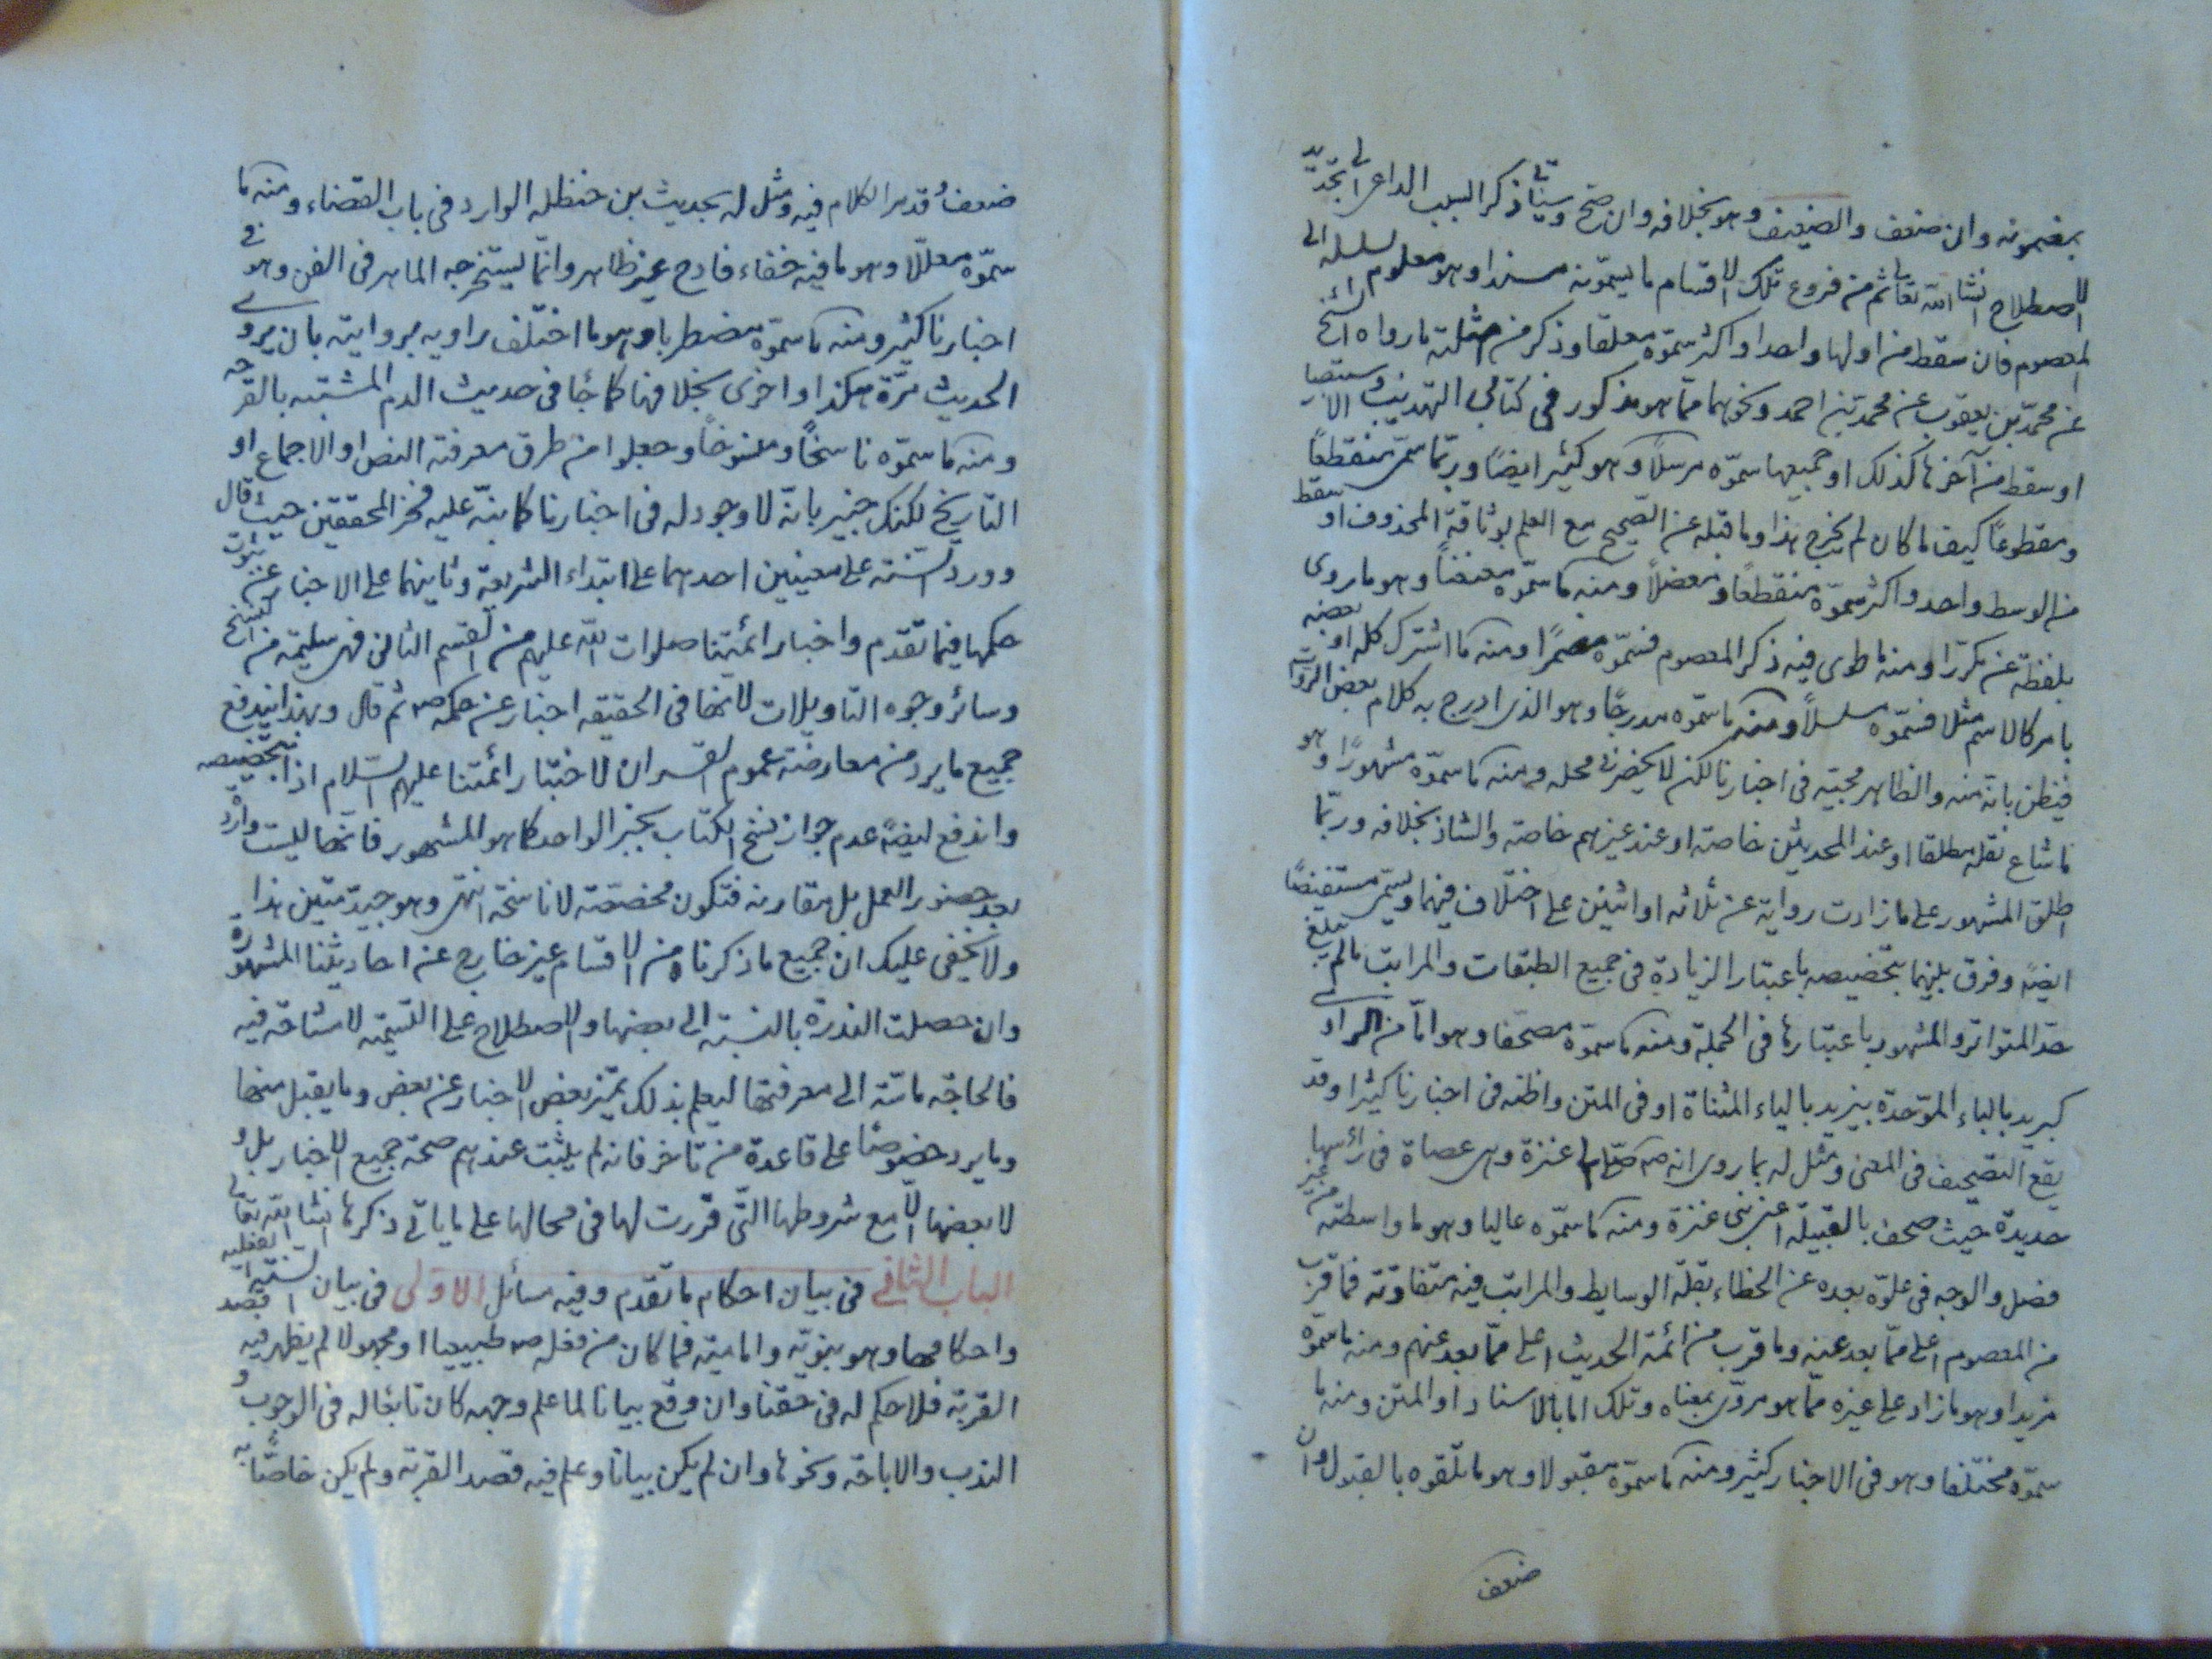 بمضمونه وان ضعف والضعيف وهو بخلافه وان صح وسياتي ذكر السبب الداعي الى تجدد
الاصطلاح انشا الله تعالى ثم من فروع تلك الاقسام ما يسمونه مسندا وهو معلوم السلسله الى
المعصوم فان سقط من اولها واحد او اكثر سموه معلقا وذكر من امثلته ما رواه الشيخ
عن محمد بن يعقوب عن محمد بن احمد ونحوهما مما هو مذكور في كتابي التهذيب والاستبصار
او سقط من آخرها كذلك او جميعها سموه مرسلاً وهو كثير ايضاً وربما سمى منقطعاً
ومقطوعاً كيف ما كان لم يخرج هذا وما قبله عن الصحيح مع العلم بوثاقة المحذوف او سقط
من الوسط واحد واكثر سموه منقطعاً ومعضلاً ومنه ما سموه معنعناً وهو ما روى
بلفظة عن مكرّرا ومنه ما طوى فيه ذكر المعصوم فسمّوه مضمراً ومنه ما اشترك كله او بعضه
بامر كالاسم مثلا فسمّوه مسلسلاً ومنه ما سموه مدرجاً وهو الذي ادرج به كلام بعض الرواة
فيظن بانه منه والظاهر مجيئه في اخبارنا لكن لا يحضرني محله ومنه ما سموه مشهوراً وهو
ما شاع نقله مطلقا او عند المحدثين خاصته او عند غيرهم خاصة والشاذ بخلافه وربّما
اطلق المشهور على ما زادت رواية عن ثلاثه او اثنين على اختلاف فيهما ويسمّى مستفيضاً
ايضاً وفرق بينهما بتخصيصه باعتبار الزيادة في جميع الطبقات والمراتب ما لم يبلغ
حد المتواتر والمشهور باعتبارها في الجملة ومنه ما سموه مصحّفا وهو امّا من الراوي
كبريد بالباء الموّحدة بيزيد بالياء المثناة او في المتن واظنه في اخبارنا كثيرا وقد
يقع التصحيف في المعنى ومثل له بما روى انه ص صلى الى عنزة وهى عصاة في رأسها
حديدة حيث صحف بالقبيلة اعنى بنى عنزة ومنه ما سموه عاليا وهو ما واسطته
فضل والوجه في علوّه بعده عن الخطاء بقلة الوسايط والمراتب فيه متفاوتة فما قرب
من المعصوم اعلى ممّا بعد عنه وما قرب من ائمة الحديث اعلى ممّا بعد عنهم ومنه ما سموه
مزيدا وهو ما زاد على غيره ممّا هو مروّى بمعناه وتلك اما بالاسناد او المتن ومنه ما
سموه مختلفا وهو في الاخبار كثير ومنه ما سموه مقبولا وهو ما تلقوه بالقبول وان
ضعف
ضعف وقد مر الكلام فيه ومثل له بحديث بن حنظله الوارد في باب القضاء ومنه ما
سموه معللا وهو ما فيه خفاء قادح غير ظاهر وانّما يستخرجه الماهر في الفن وهو في
اخبارنا كثير ومنه ما سموه مضطربا وهو ما اختلف راويه بروايته بان يروى
الحديث مرّة هكذا واخرى بخلافها كما جا في حديث الدم المشتبه بالقرحه
ومنه ما سموه ناسخاً ومنسوخاً وجعلوا من طرق معرفته النص او الاجماع او
التاريخ لكنك خبير بانه لا وجود له في اخبارنا كما نبّه عليه فخر المحققين حيث قال
وورد السنته على معنيين احدهما على ابتداء الشريعة وثانيهما على الاخبار عن ثبوت
حكمها فيما تقدم واخبار ائمتنا صلوات الله عليهم من القسم الثاني فهى سليمة من النسخ
وسائر وجوه التاويلات لانها في الحقيقه اخبار عن حكمه ص ثم قال وبهذا يندفع
جميع ما يرد من معارضة عموم القران لاخبار ائمتنا عليهم السّلام اذا بتخصيصه
واندفع ايضاً عدم جواز نسخ الكتاب بخبر الواحد كما هو المشهور فانها ليست واردة
بعد حضور العمل بل مقارنه فتكون مخصّصّة لا ناسخة انتهى وهو جيد متين هذا
ولا يخفى عليك ان جميع ما ذكرناه من الاقسام غير خارج عن احاديثنا المشهورة
وان حصلت الندرة بالنسبة الى بعضها والاصطلاح على التسيمته لا مشاحة فيه
فالحاجه ماسّة الى معرفتها ليعلم بذلك تميّز بعض الاخبار عن بعض وما يقبل منها
وما يرد خصوصًا على قاعدة من تاخر فانه لم يثبت عندهم صحة جميع الاخبار بل و
لا بعضها الا مع شروطها التّى قررت لها في محالها على ما ياتي ذكرها انشا الله تعالى
الباب الثاني في بيان احكام ما تقدم وفيه مسائل الاولى في بيان السنة الفعلية
واحكامها وهو نبويّه واماميّه فما كان من فعله ص طبيعيا او مجهولا لم يظهر فيه قصد
القربة فلا حكم له في حقنا وان وقع بيانا لما علم وجهه كان تابعا له في الوجوب و
الندب والاباحة ونحوها وان لم يكن بيانا وعلم فيه قصد القربة ولم يكن خاصًّا به